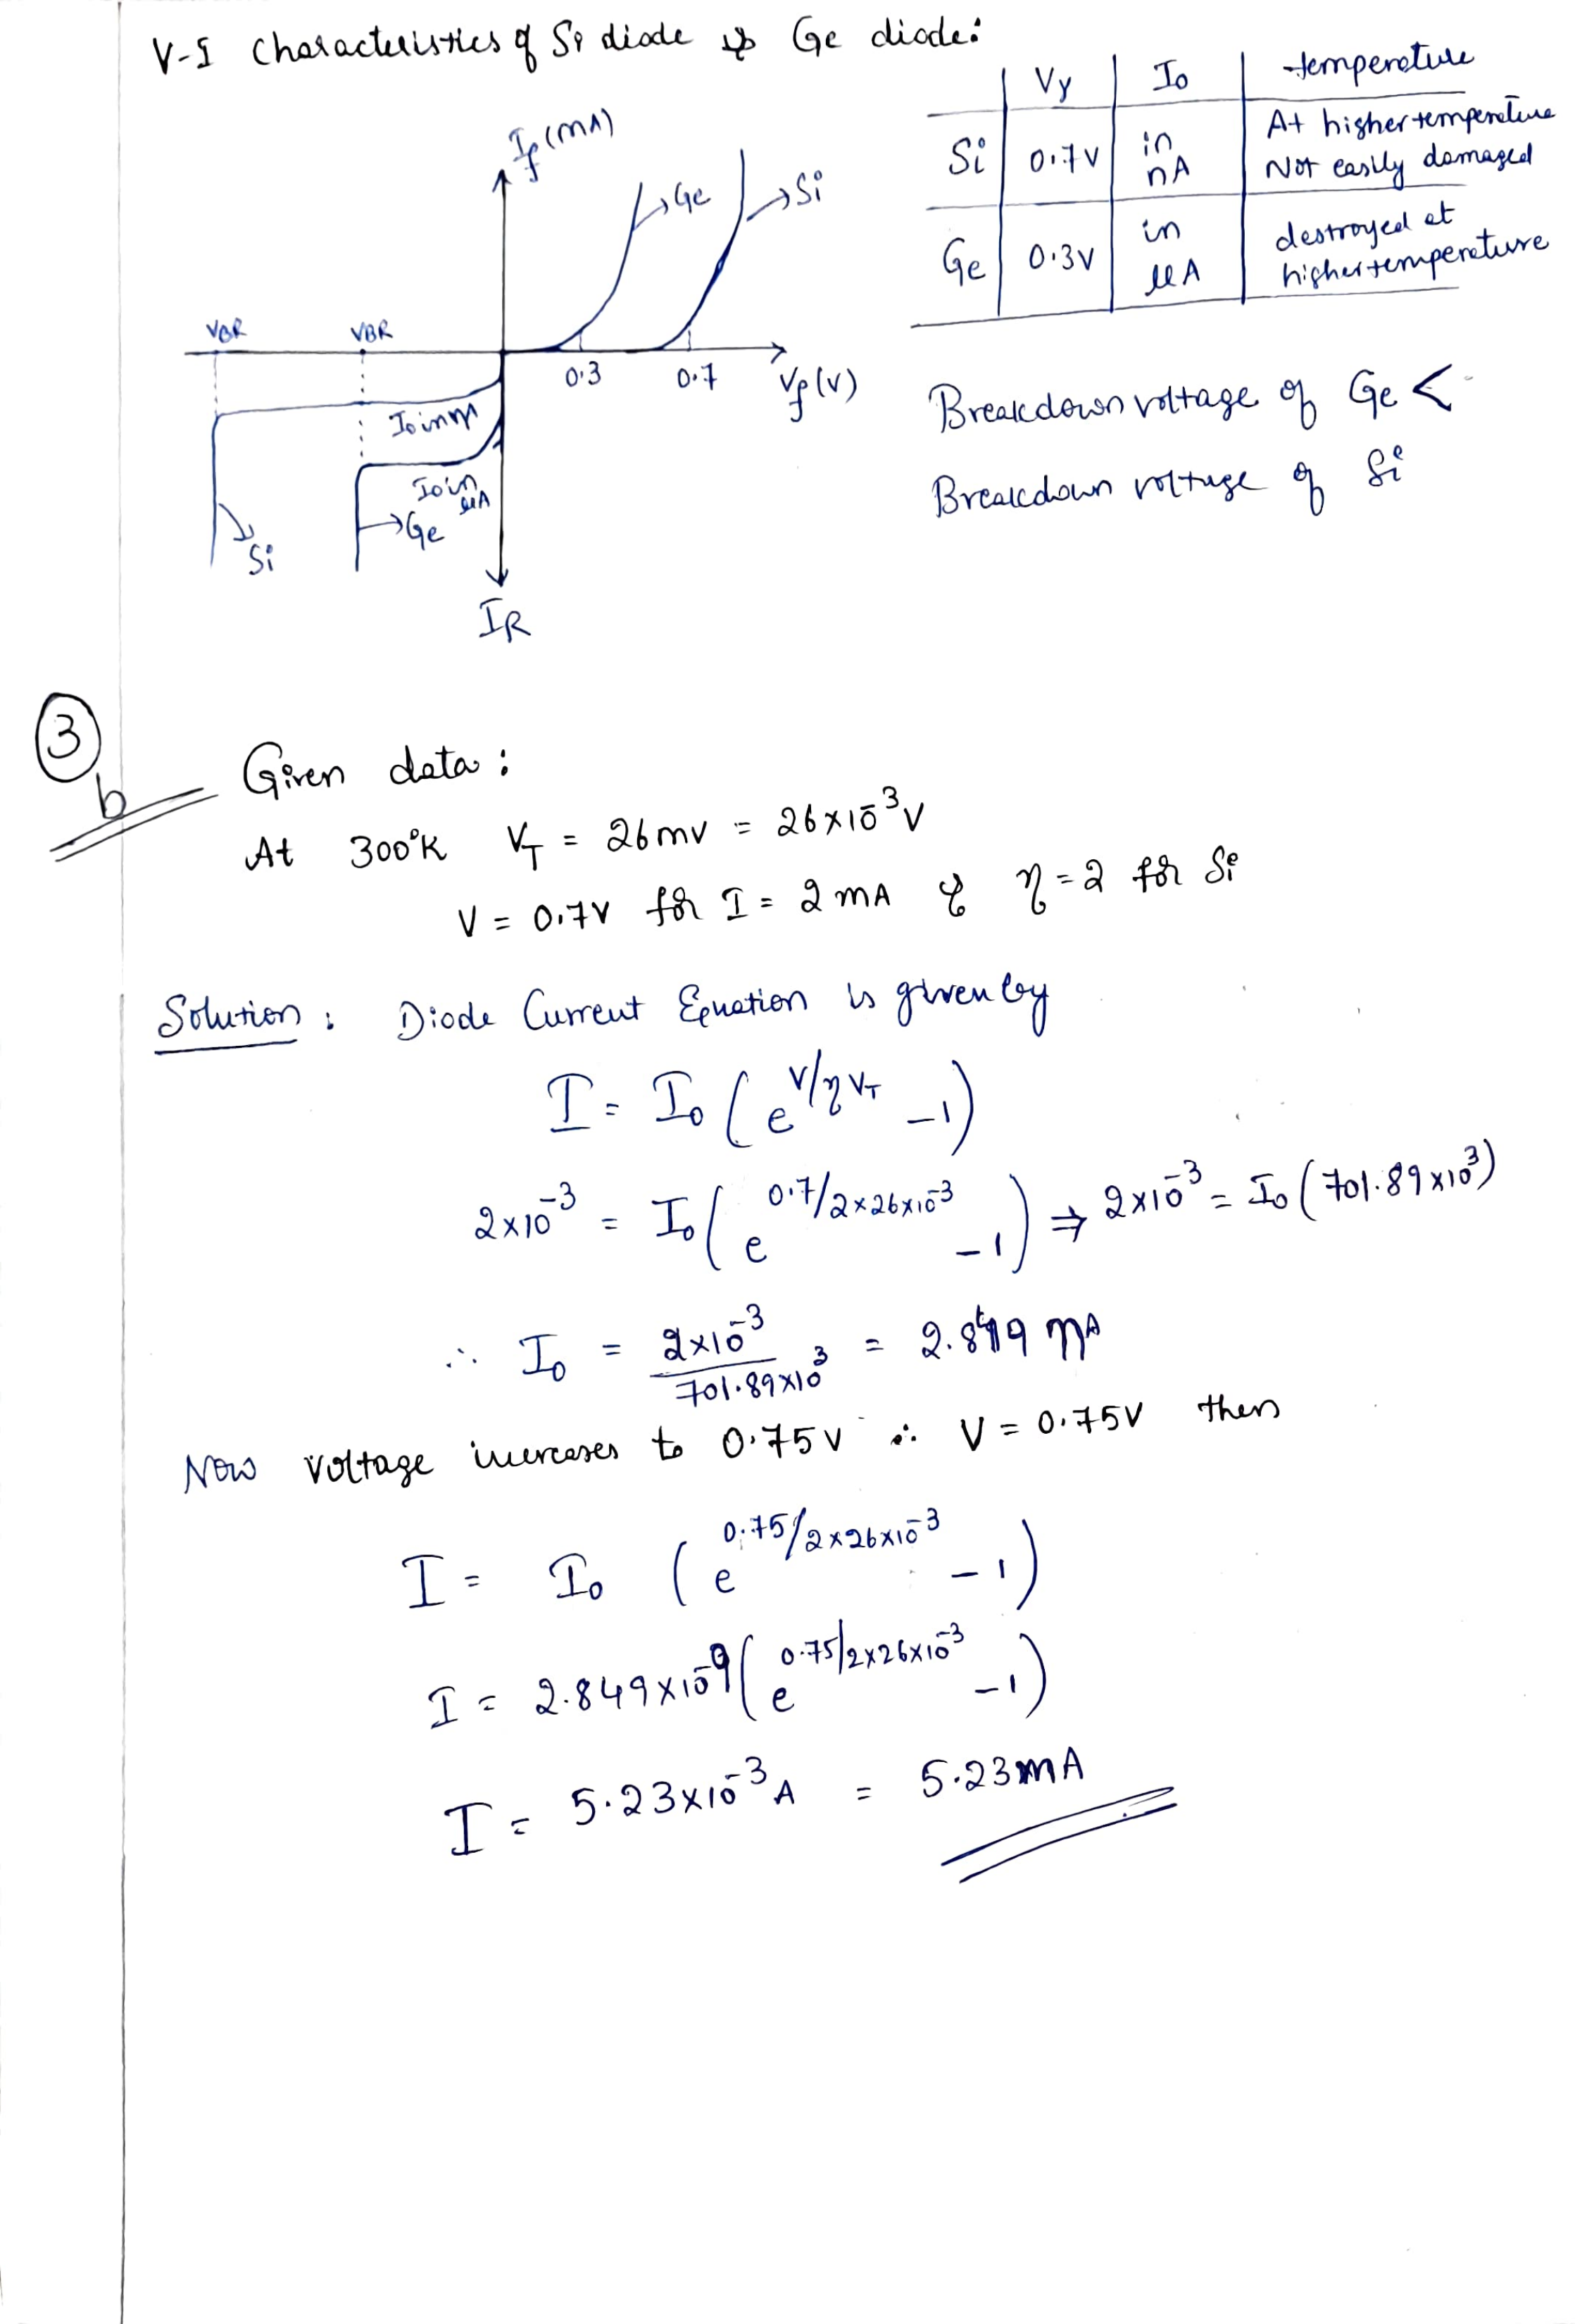 V-I Characteristics of Si diode & Ge diode:
Vγ | I₀ | temperature
Si | 0.7V | in nA | At higher temperature Not easily damaged
Ge | 0.3V | in µA | destroyed at higher temperature
If (mA)
→Ge
→Si
VBR
VBR
0.3
0.7
Vf (V)
I₀ in nA
I₀ in µA
→Ge
Si
IR
Breakdown voltage of Ge <
Breakdown voltage of Si
3
b
Given data :
At 300°K V_T = 26mV = 26×10⁻³V
V = 0.7V for I = 2 mA & η = 2 for Si
Solution : Diode Current Equation is given by
I = I₀ ( e^(V/ηV_T) − 1)
2×10⁻³ = I₀ ( e^(0.7/2×26×10⁻³) − 1) ⇒ 2×10⁻³ = I₀ ( 701.89×10³)
∴ I₀ = 2×10⁻³ / 701.89×10³ = 2.849 nA
Now voltage increases to 0.75V ∴ V = 0.75V then
I = I₀ ( e^(0.75/2×26×10⁻³) − 1)
I = 2.849×10⁻⁹ ( e^(0.75/2×26×10⁻³) − 1)
I = 5.23×10⁻³ A = 5.23mA